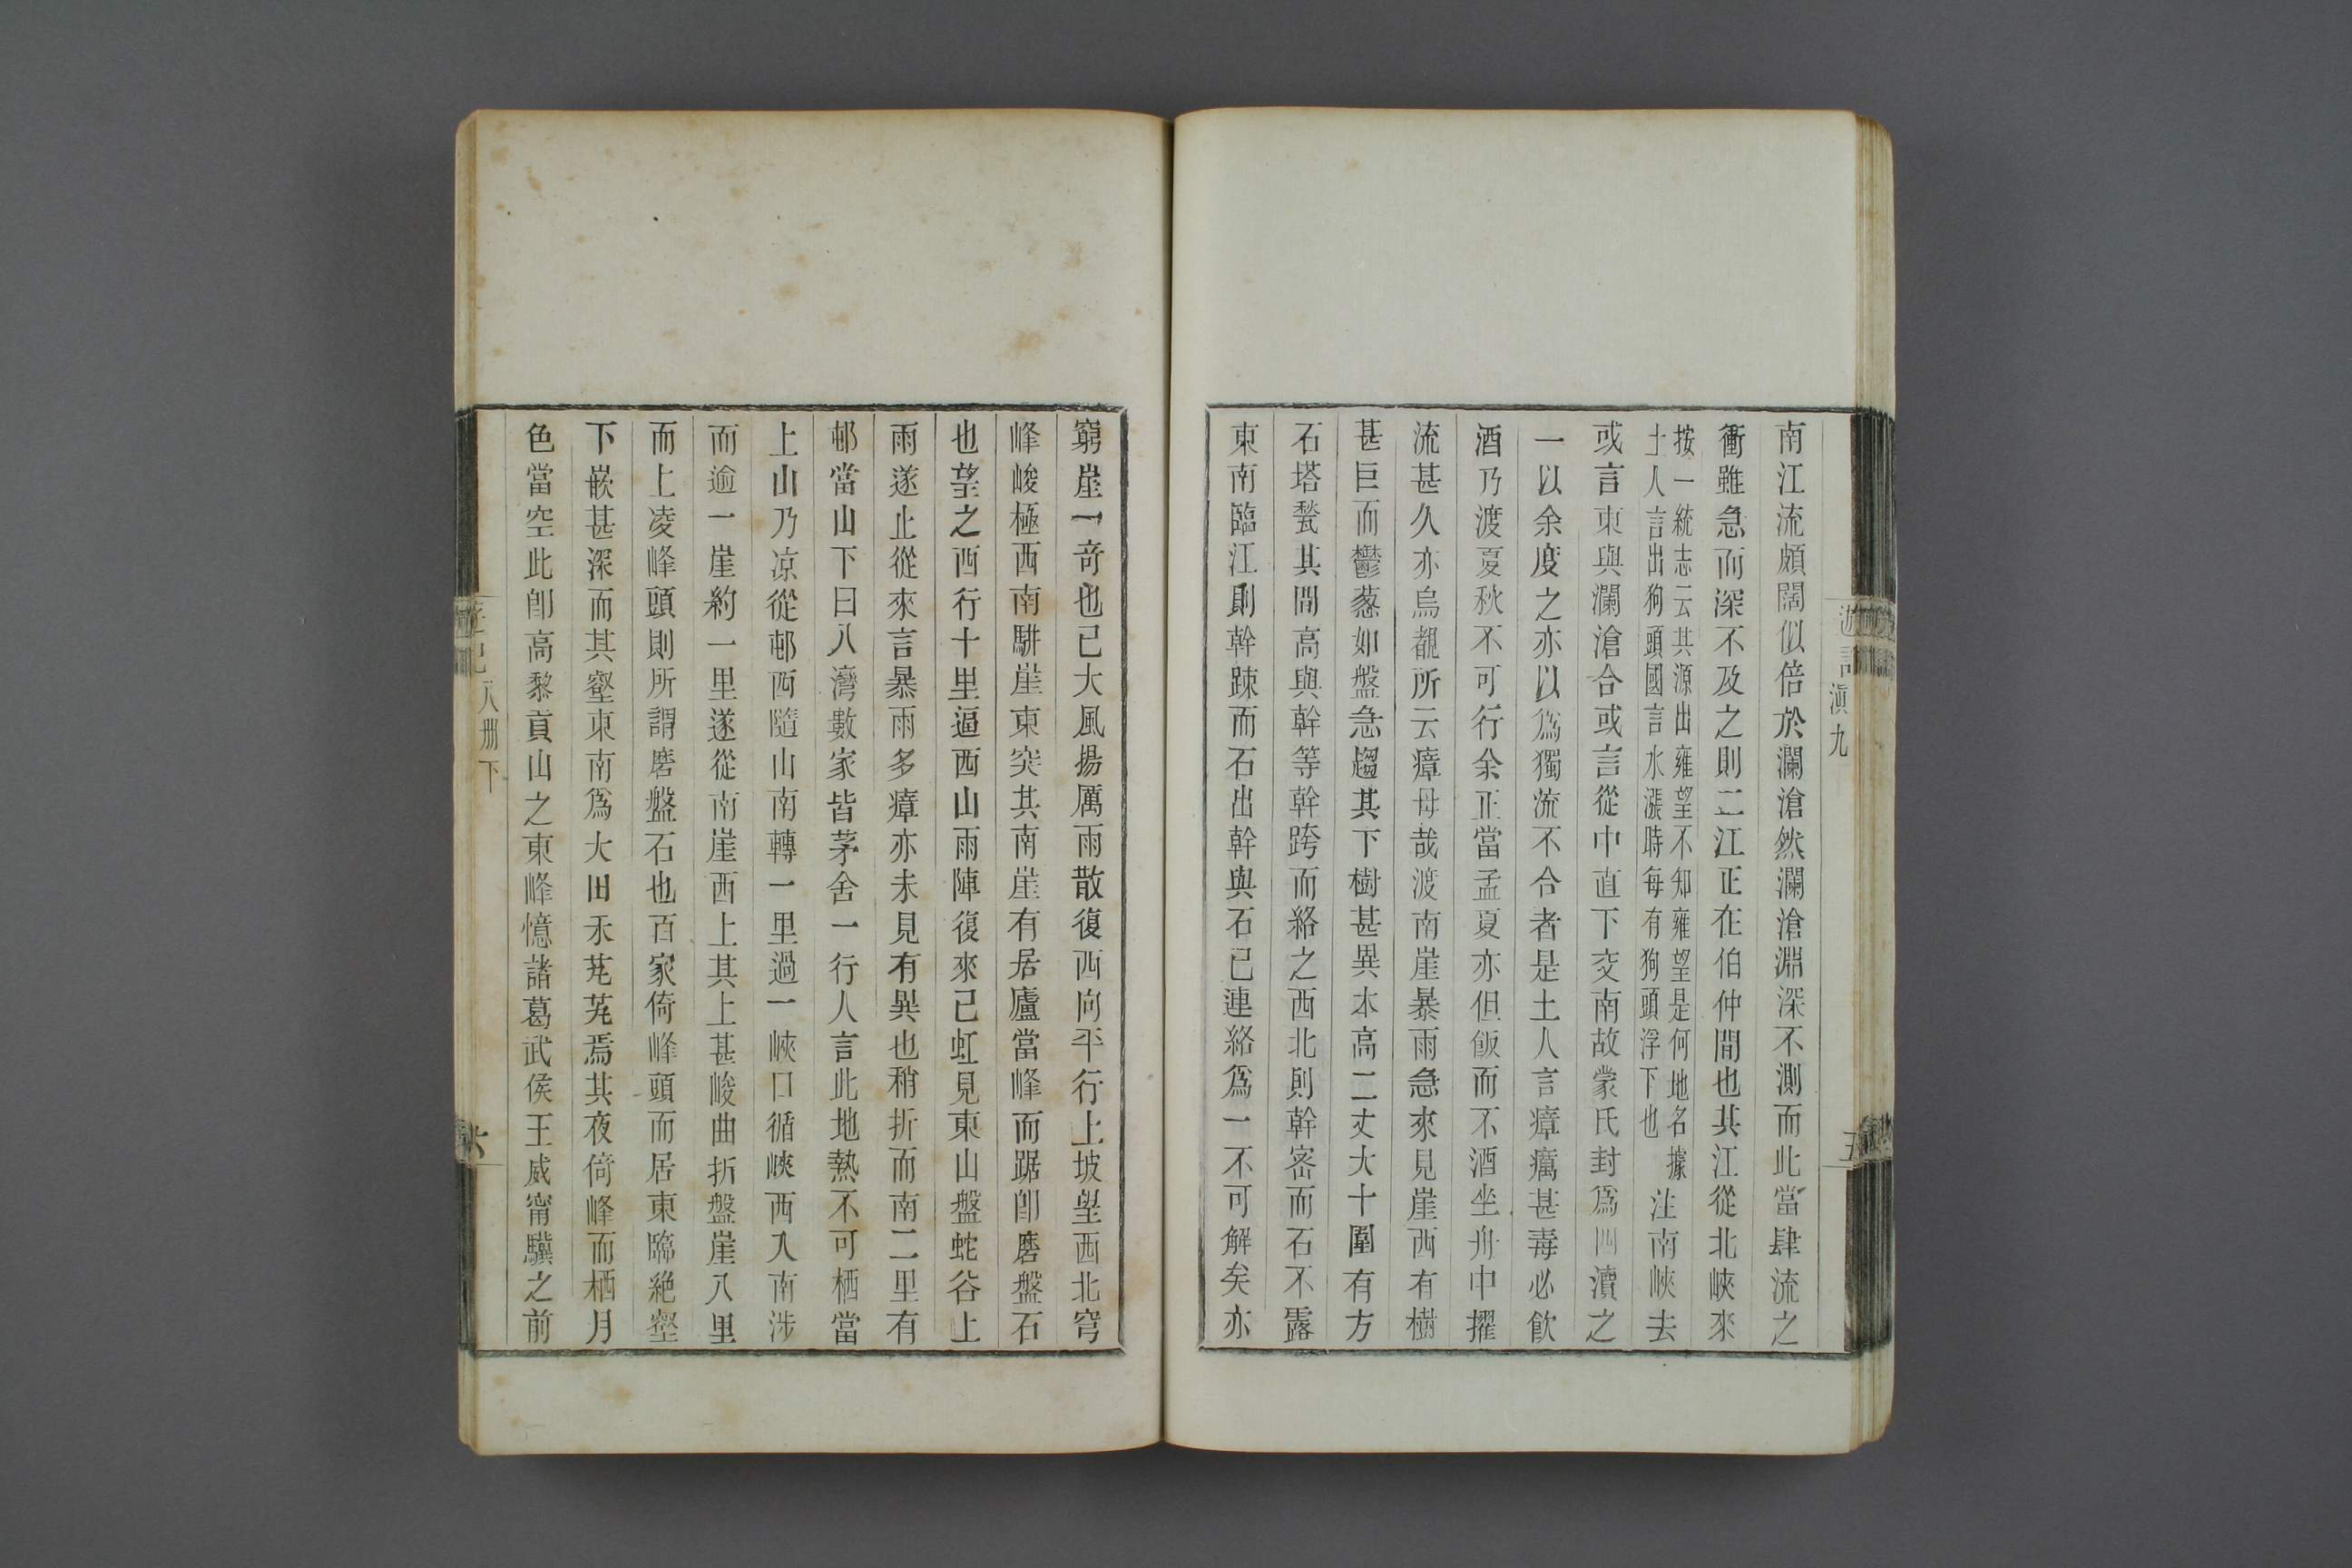 遊記 滇九
南江流頗闊似倍於瀾滄然瀾滄淵深不測而此當肆流之
衝雖急而深不及之則二江正在伯仲間也其江從北峽來
按一統志云其源出雍望不知雍望是何地名據
土人言出狗頭國言水漲時每有狗頭浮下也
注南峽去
或言東與瀾滄合或言從中直下交南故蒙氏封為四瀆之
一以余度之亦以為獨流不合者是土人言瘴癘甚毒必飲
酒乃渡夏秋不可行余正當孟夏亦但飯而不酒坐舟中擢
流甚久亦烏覩所云瘴母哉渡南崖暴雨急來見崖西有樹
甚巨而鬱蔥如盤急趨其下樹甚異本高二丈大十圍有方
石塔甃其間高與幹等幹跨而絡之西北則幹密而石不露
東南臨江則幹踈而石出幹與石已連絡為一不可解矣亦
窮崖一奇也已大風揚厲雨散復西向平行上坡望西北穹
峰峻極西南駢崖東突其南崖有居廬當峰而踞卽磨盤石
也望之西行十里逼西山雨陣復來已虹見東山盤蛇谷上
雨遂止從來言暴雨多瘴亦未見有異也稍折而南二里有
邨當山下曰八灣數家皆茅舍一行人言此地熱不可栖當
上山乃凉從邨西隨山南轉一里過一峽口循峽西入南涉
而逾一崖約一里遂從南崖西上其上甚峻曲折盤崖八里
而上凌峰頭則所謂磨盤石也百家倚峰頭而居東臨絶壑
下嵌甚深而其壑東南為大田禾芃芃焉其夜倚峰而栖月
色當空此卽高黎貢山之東峰憶諸葛武侯王威甯驥之前
八冊下
六